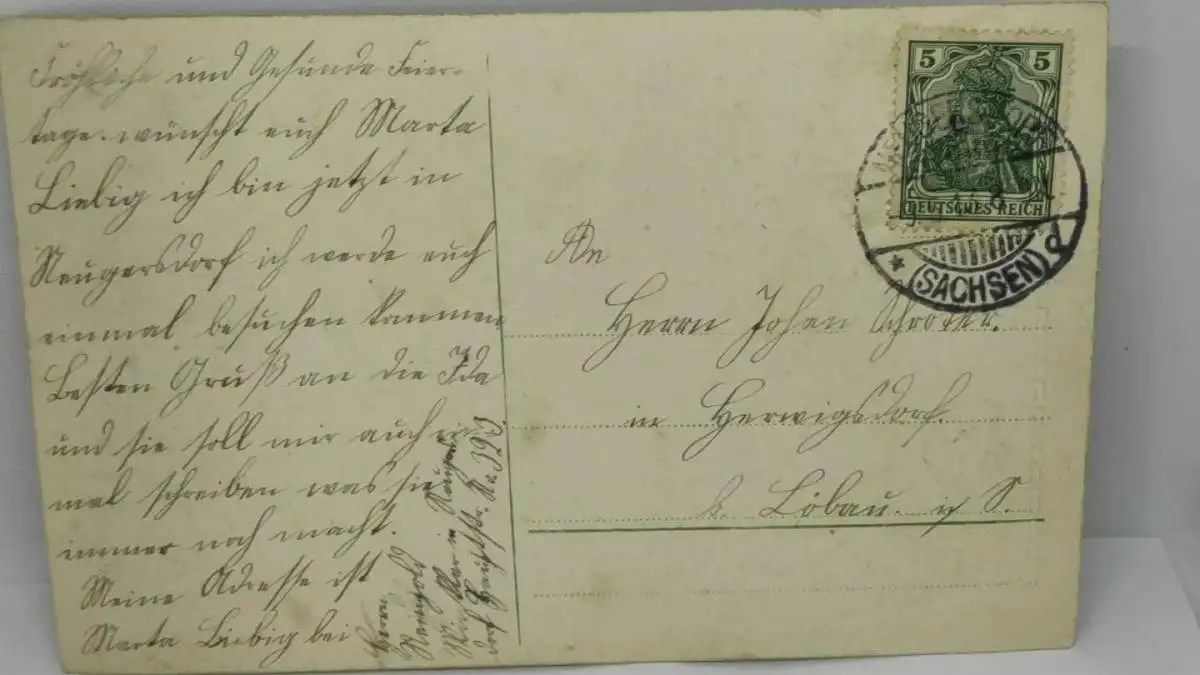 Fröhliche und Gesunde Feier-
tage. wünscht euch Marta
Liebig ich bin jetzt in
Neugersdorf ich werde euch
einmal besuchen kommen
Besten Gruß an die Ida
und sie soll mir auch
mal schreiben was sie
immer noch macht.
Meine Adresse ist
Marta Liebig bei
Herrn
Reinhold
in
dorf Hauptstr. No. 392
An
Herrn Johan Schröter.
in Herwigsdorf.
b. Löbau. i/S.
5 5
DEUTSCHES REICH
* (SACHSEN) d